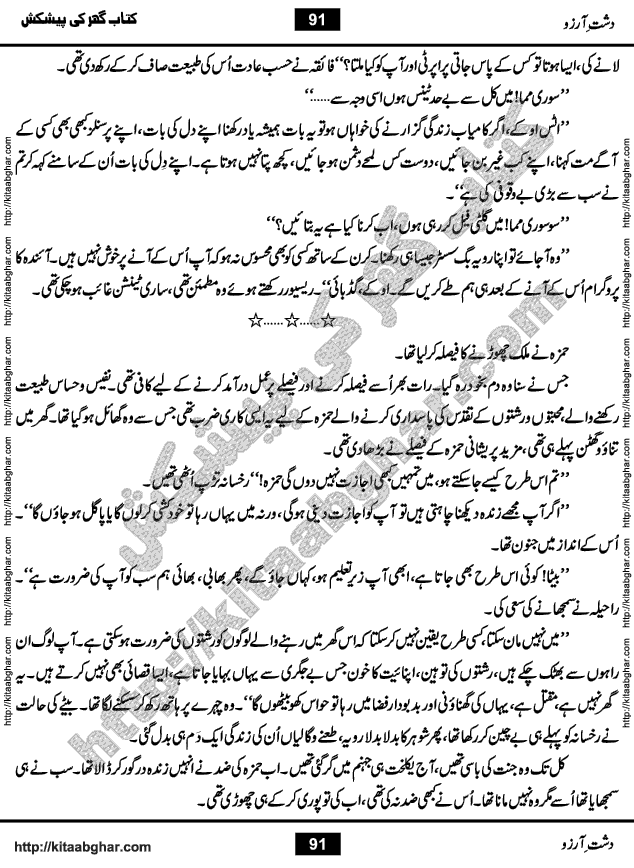 کتاب گھر کی پیشکش 91 دشتِ آرزو
لانے کی، ایسا ہوتا تو کس کے پاس جاتی پراپرٹی اور آپ کو کیا ملتا؟‘‘ فائقہ نے حسب عادت اُس کی طبیعت صاف کر کے رکھ دی تھی۔
’’سوری مما! میں کل سے بے حد ٹینس ہوں اسی وجہ سے......‘‘
’’اٹس اوکے، اگر کامیاب زندگی گزارنے کی خواہاں ہو تو یہ بات ہمیشہ یاد رکھنا اپنے دل کی بات، اپنے پرسنلز کبھی بھی کسی کے
آگے مت کہنا، اپنے کب غیر بن جائیں، دوست کس لمحے دشمن ہو جائیں، کچھ پتا نہیں ہوتا ہے۔ اپنے دل کی بات اُن کے سامنے کہہ کر تم
نے سب سے بڑی بے وقوفی کی ہے‘‘۔
’’سو سوری مما! میں گلٹی فیل کر رہی ہوں، اب کرنا کیا ہے یہ بتائیں؟‘‘
’’وہ آ جائے تو اپنا رویہ بگ سسٹر جیسا ہی رکھنا۔ کرن کے ساتھ کسی کو بھی محسوس نہ ہو کہ آپ اُس کے آنے پر خوش نہیں ہیں۔ آئندہ کا
پروگرام اُس کے آنے کے بعد ہی ہم طے کریں گے۔ اوکے، گڈ بائی‘‘۔ ریسیور رکھتے ہوئے وہ مطمئن تھی، ساری ٹینشن غائب ہو چکی تھی۔
☆......☆......☆
حمزہ نے ملک چھوڑنے کا فیصلہ کر لیا تھا۔
جس نے سنا وہ دم بخود رہ گیا۔ رات بھر اُسے فیصلہ کرنے اور فیصلے پر عمل درآمد کرنے کے لیے کافی تھی۔ نفیس و حساس طبیعت
رکھنے والے، محبتوں و رشتوں کے تقدس کی پاسداری کرنے والے حمزہ کے لیے یہ ایسی کاری ضرب تھی جس سے وہ گھائل ہو گیا تھا۔ گھر میں
تناؤ و گھٹن پہلے ہی تھی، مزید پریشانی حمزہ کے فیصلے نے بڑھا دی تھی۔
’’تم اس طرح کیسے جا سکتے ہو، میں تمہیں کبھی اجازت نہیں دوں گی حمزہ!‘‘ رخسانہ تڑپ اُٹھی تھیں۔
’’اگر آپ مجھے زندہ دیکھنا چاہتی ہیں تو آپ کو اجازت دینی ہو گی، ورنہ میں یہاں رہا تو خودکشی کر لوں گا یا پاگل ہو جاؤں گا‘‘۔
اُس کے انداز میں جنون تھا۔
’’بیٹا! کوئی اس طرح بھی جاتا ہے، ابھی آپ زیرِ تعلیم ہو، کہاں جاؤ گے، پھر بھابی، بھائی ہم سب کو آپ کی ضرورت ہے‘‘۔
راحیلہ نے سمجھانے کی سعی کی۔
’’میں نہیں مان سکتا، کسی طرح یقین نہیں کر سکتا کہ اس گھر میں رہنے والے لوگوں کو رشتوں کی ضرورت ہو سکتی ہے۔ آپ لوگ ان
راہوں سے بھٹک چکے ہیں، رشتوں کی توہین، اپنائیت کا خون جس بے جگری سے یہاں بہایا جاتا ہے، ایسا قصائی بھی نہیں کرتے ہیں۔ یہ
گھر نہیں ہے، مقتل ہے، یہاں کی گھناؤنی اور بدبودار فضا میں رہا تو حواس کھو بیٹھوں گا‘‘۔ وہ چہرے پر ہاتھ رکھ کر سسکنے لگا تھا۔ بیٹے کی حالت
نے رخسانہ کو پہلے ہی بے چین کر رکھا تھا، پھر شوہر کا بدلا بدلا رویہ، طعنے و گالیاں اُن کی زندگی ایک دم ہی بدل گئی۔
کل تک وہ جنت کی باسی تھیں، آج یکلخت ہی جہنم میں گر گئی تھیں۔ اب حمزہ کی ضد نے انہیں زندہ درگور کر ڈالا تھا۔ سب نے ہی
سمجھایا تھا اُسے مگر وہ نہیں مانا تھا۔ اُس نے کبھی ضد نہ کی تھی، اب کی تو پوری کر کے ہی چھوڑی تھی۔
http://kitaabghar.com http://kitaabghar.com http://kitaabghar.com http://kitaabghar.com http://kitaabghar.com http://kitaabghar.com
http://kitaabghar.com http://kitaabghar.com http://kitaabghar.com http://kitaabghar.com http://kitaabghar.com http://kitaabghar.com
کتاب گھر کی پیشکش
http://kitaabghar.com
http://kitaabghar.com 91 دشتِ آرزو